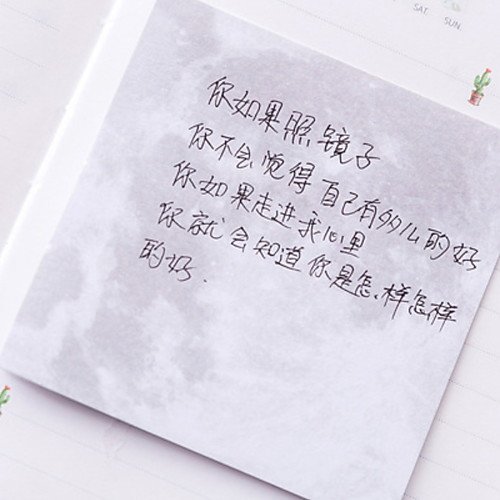 SAT. SUN.
你如果照镜子
你不会觉得自己有多么的好
你如果走进我心里
你就会知道你是怎样怎样
的好.